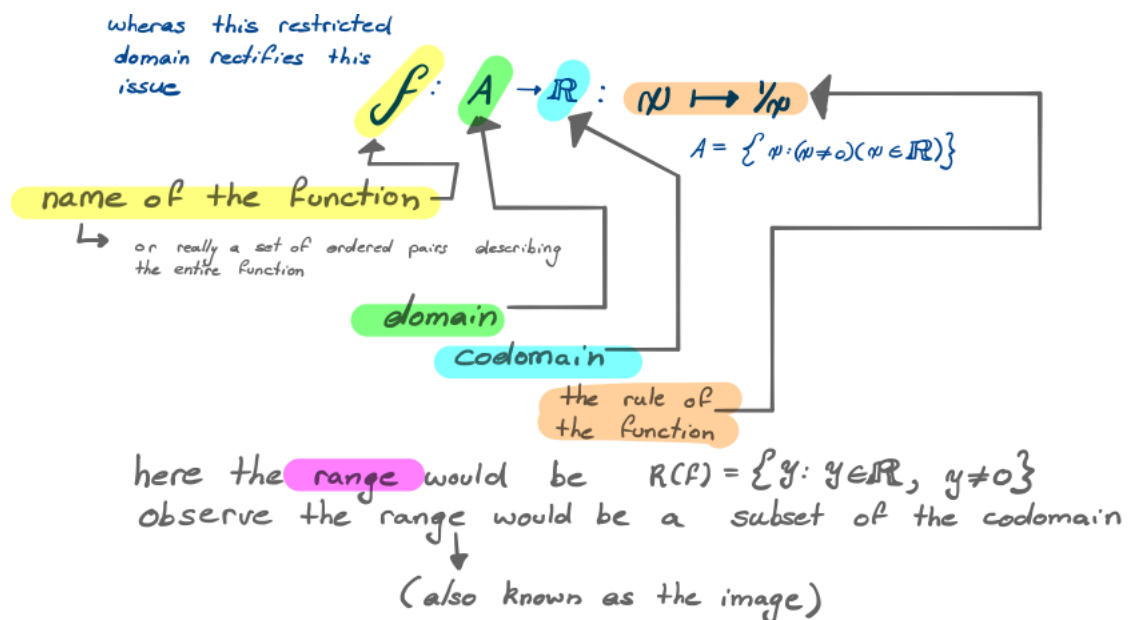 wheras this restricted
domain rectifies this
issue
f : A → ℝ : x ↦ 1/x
A = { x : (x ≠ 0)(x ∈ ℝ)}
name of the function
↳ or really a set of ordered pairs describing
the entire function
domain
codomain
the rule of
the function
here the range would be R(f) = { y : y ∈ ℝ, y ≠ 0 }
observe the range would be a subset of the codomain
(also known as the image)